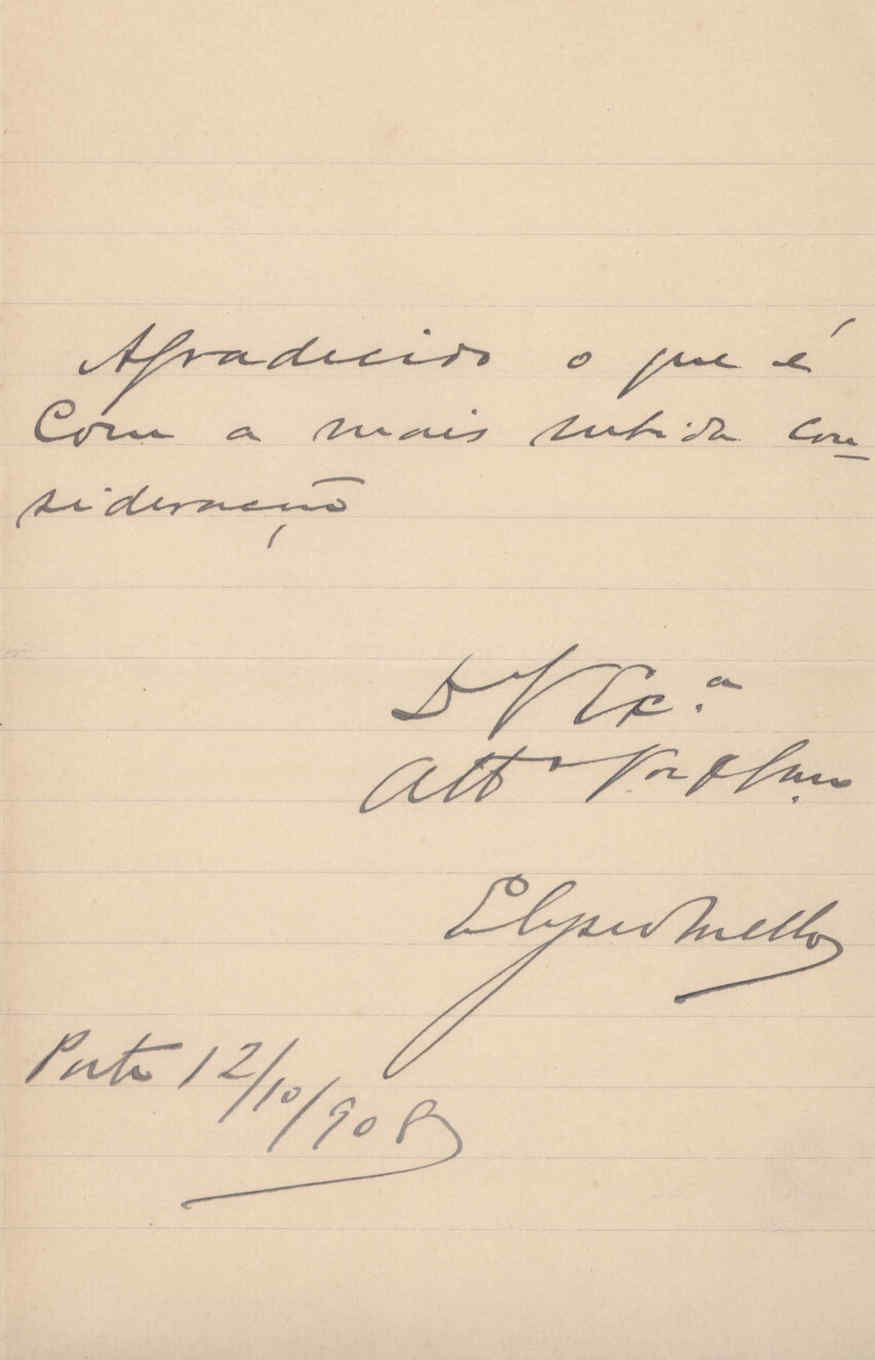 Agradecido o que é
Com a mais subida con-
sideração
D V Exc.ª
Att.º Ven.
Elyseu Mello
Porto 12/10/908